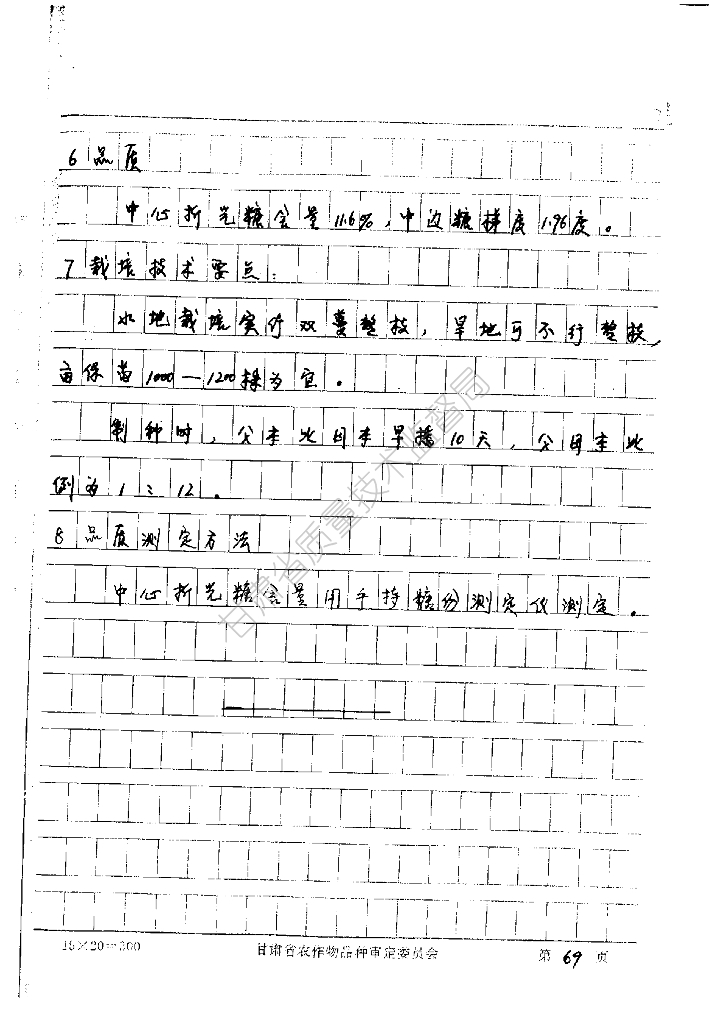 6品质
中心折光糖含量11.6%，中边糖梯度1.96度。
7栽培技术要点：
水地栽培实行双蔓整枝，旱地可不行整枝，
亩保苗1000—1200株为宜。
制种时，父本比母本早播10天，父母本比
例为1：12。
8品质测定方法
中心折光糖含量用手持糖份测定仪测定。
甘肃省质量技术监督局
15×20=300 甘肃省农作物品种审定委员会 第69页